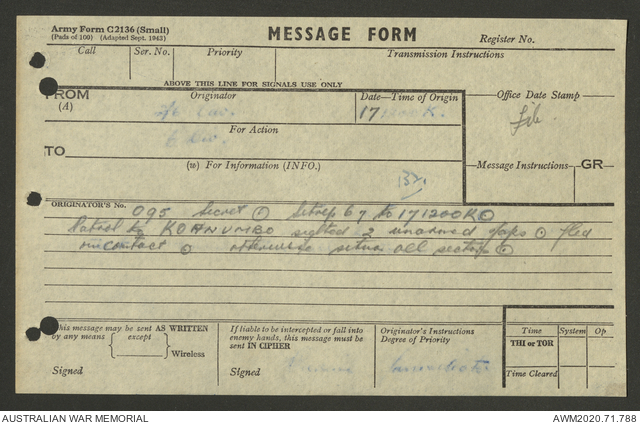 Army Form C2136 (Small)
(Pads of 100) (Adapted Sept. 1943)
MESSAGE FORM
Register No.
Call Ser. No. Priority Transmission Instructions
ABOVE THIS LINE FOR SIGNALS USE ONLY
FROM
(A)
Originator
Date—Time of Origin
Office Date Stamp
17
For Action
TO
(w) For Information (INFO.)
Message Instructions GR
132
ORIGINATOR'S No.
095 Secret ⊙ Sitrep 67 to 171200K ⊙
Patrol to KOANUMBO sighted 2 unarmed Japs ⊙ fled
on contact ⊙ otherwise all ⊙
This message may be sent AS WRITTEN
by any means except
Wireless
Signed
If liable to be intercepted or fall into
enemy hands, this message must be
sent IN CIPHER
Signed
Originator's Instructions
Degree of Priority
Time System Op
THI or TOR
Time Cleared
AUSTRALIAN WAR MEMORIAL AWM2020.71.788